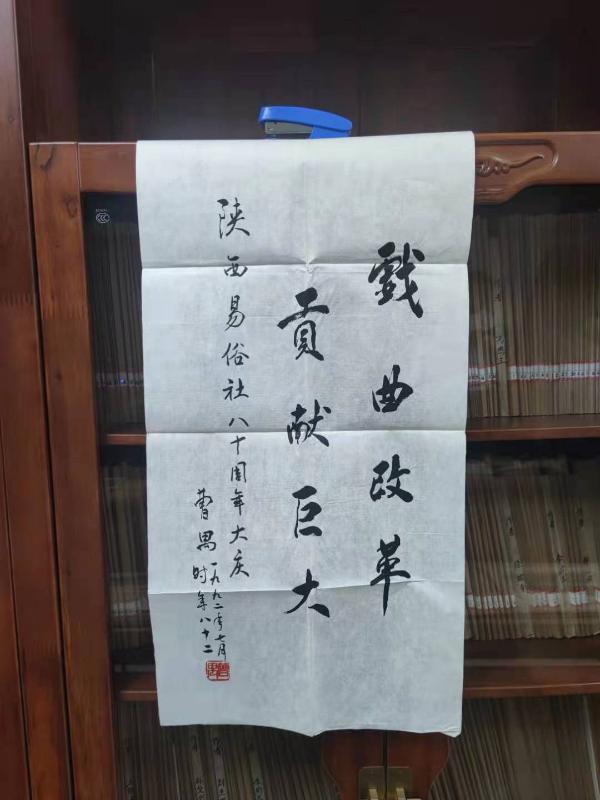 戲曲改革
贡献巨大
陕西易俗社八十周年大庆
曹禺
一九九二年七月
时年八十二